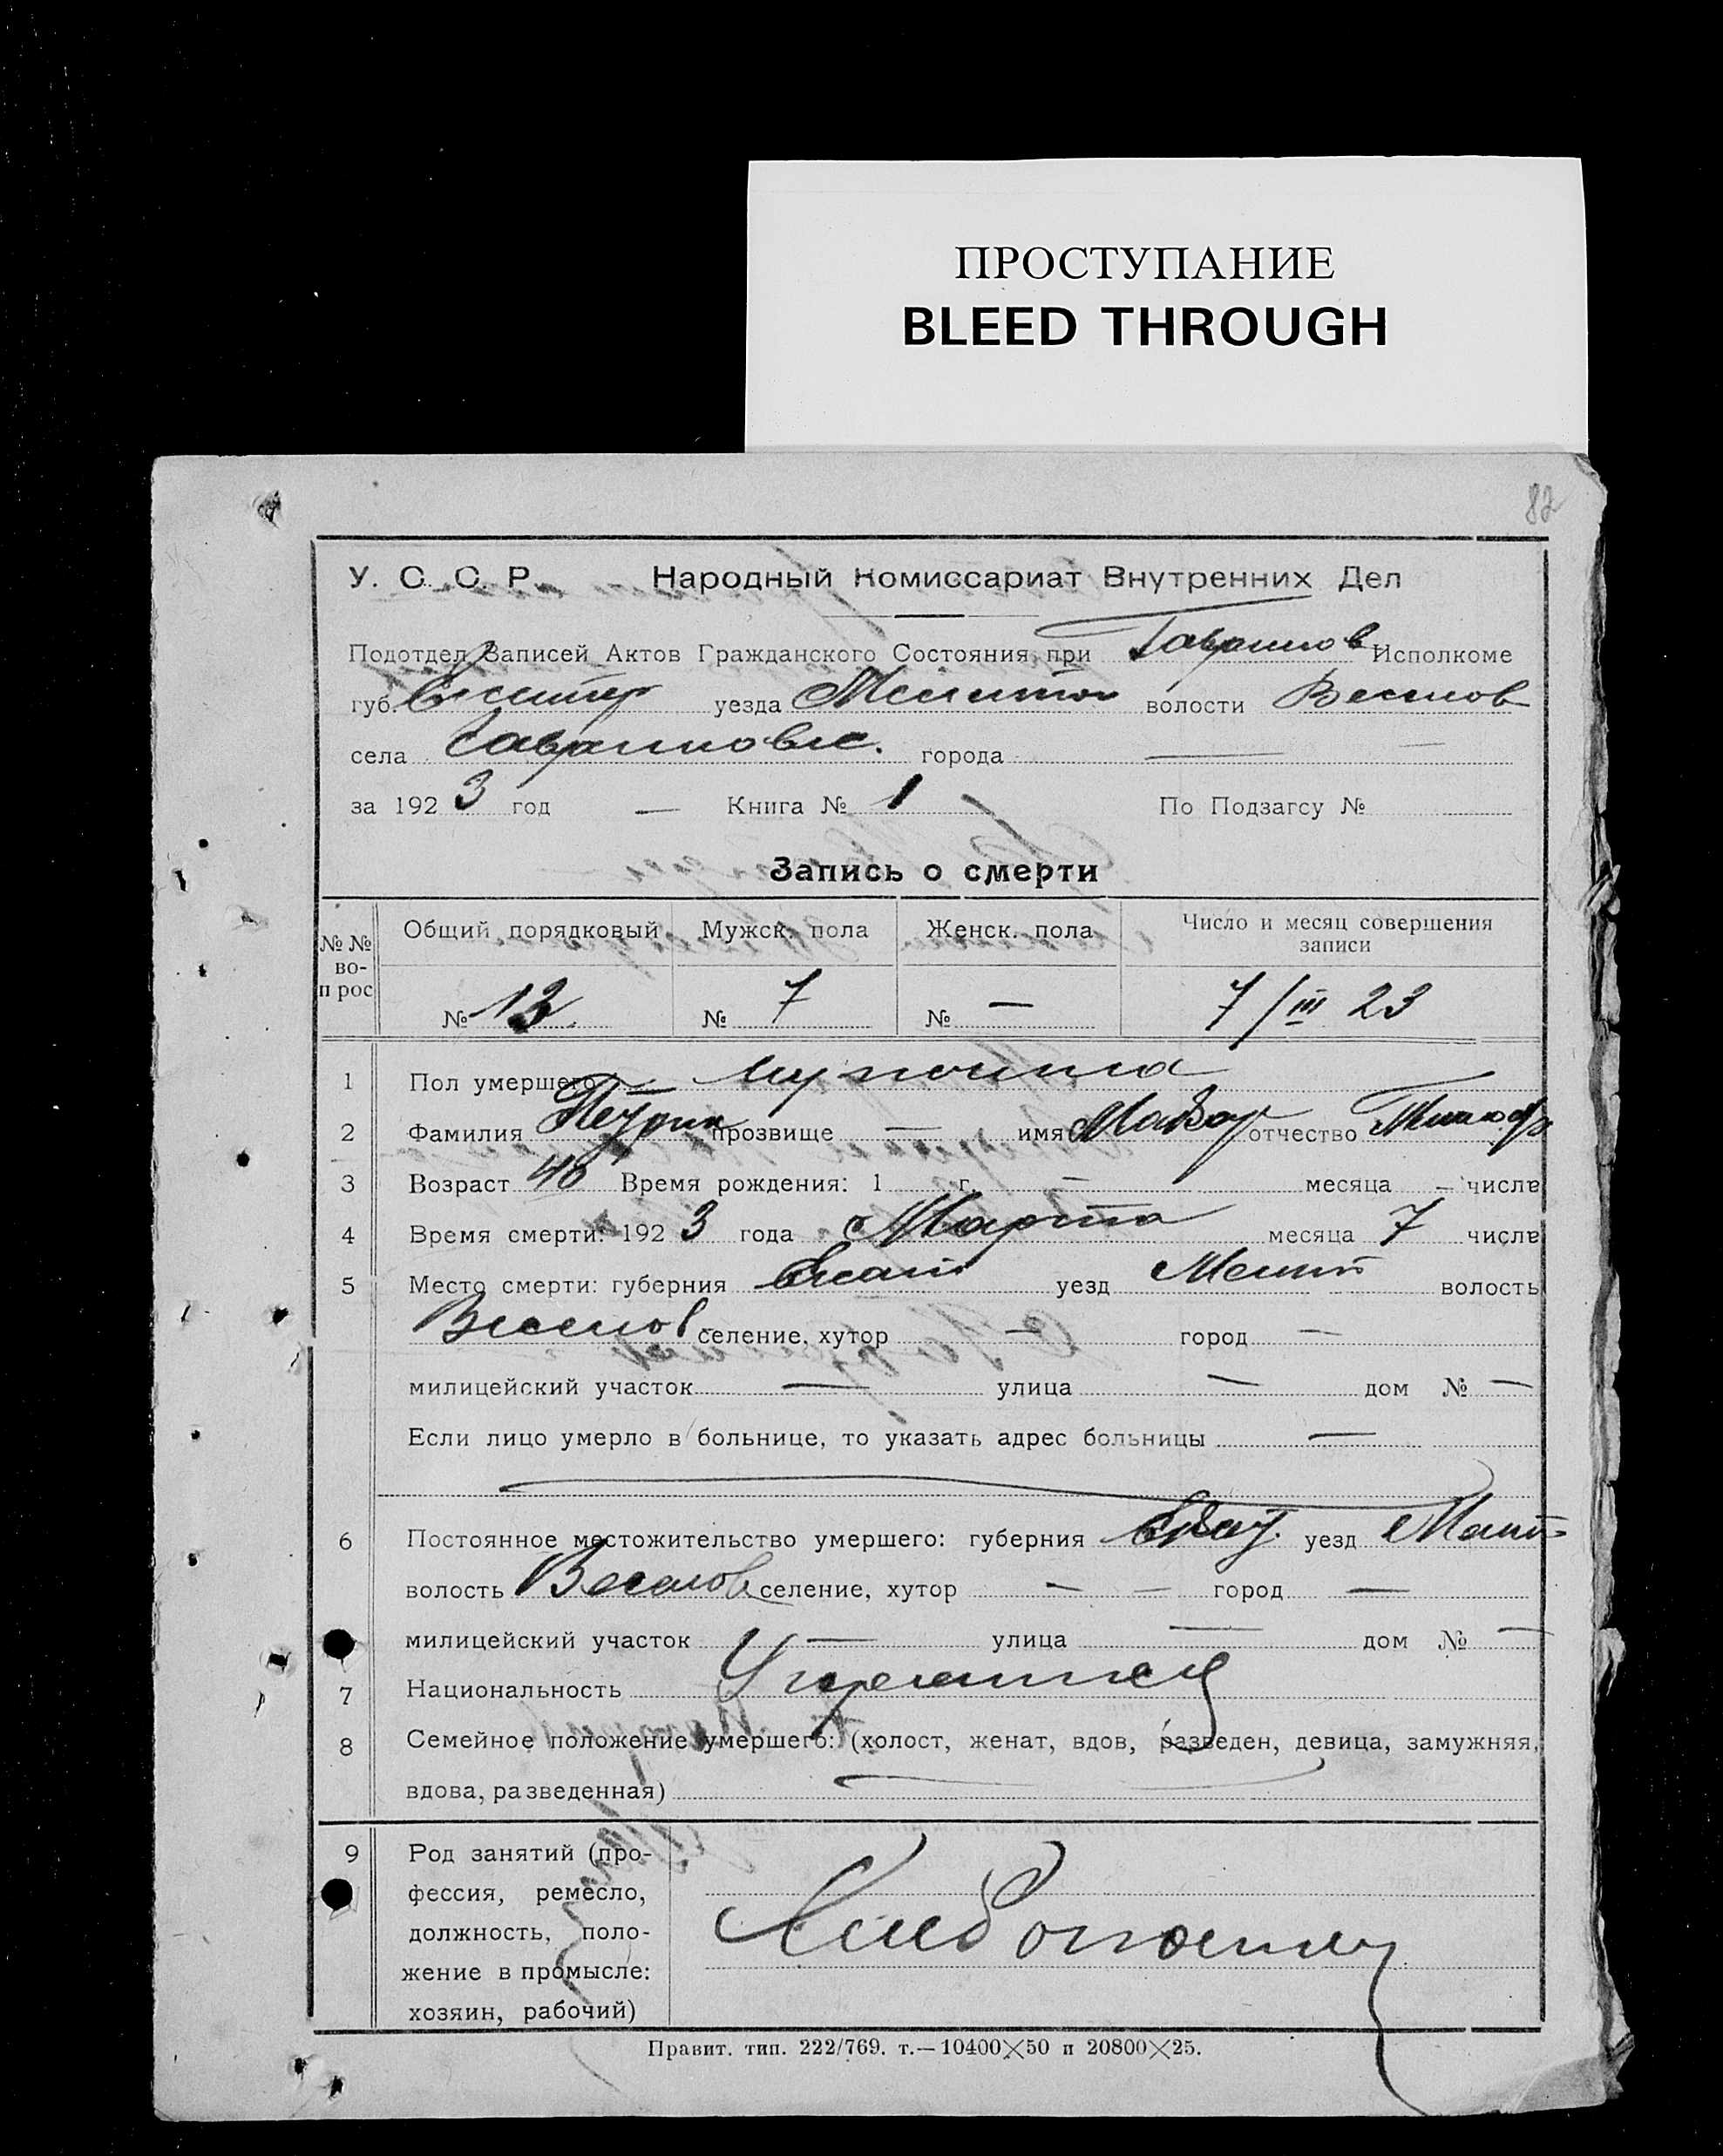 ПРОСТУПАНИЕ
BLEED THROUGH
82
У. С. С. Р. Народный Комиссариат Внутренних Дел
Подотдел Записей Актов Гражданского Состояния при Исполкоме
губ. уезда волости Веселов
села города —
за 1923 год — Книга № 1 По Подзагсу №
Запись о смерти
№ № вопрос Общий порядковый Мужск. пола Женск. пола Число и месяц совершения записи
№ № 7 № — 7/III 23
1 Пол умершего мужчина
2 Фамилия прозвище — имя отчество
3 Возраст Время рождения: 1 г. — месяца — числа
4 Время смерти: 1923 года Марта месяца 7 числа
5 Место смерти: губерния Екат уезд Мелит волость
Веселов селение, хутор — город —
милицейский участок — улица — дом № —
Если лицо умерло в больнице, то указать адрес больницы —
6 Постоянное местожительство умершего: губерния уезд Мелит
волость Веселов селение, хутор — — город —
милицейский участок — улица — дом № —
7 Национальность Украинец
8 Семейное положение умершего: (холост, женат, вдов, разведен, девица, замужняя,
вдова, разведенная)
9 Род занятий (про-
фессия, ремесло,
должность, поло-
жение в промысле:
хозяин, рабочий)
Хлебопашец
Правит. тип. 222/769. т.—10400×50 и 20800×25.